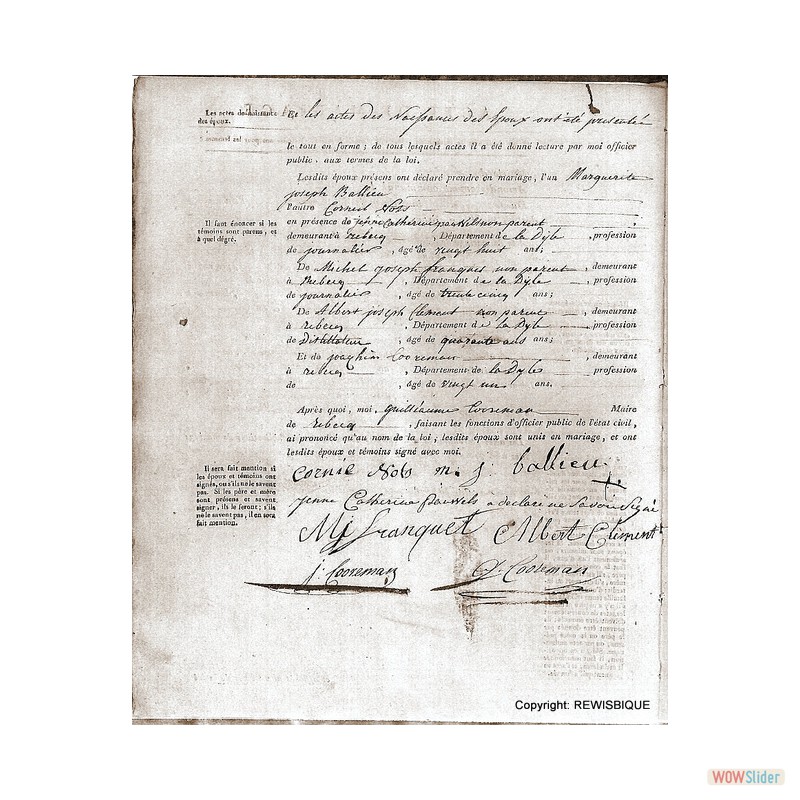 Les actes de naissance
des époux.
Et les actes des Naissances des Epoux ont été presenté
le tout en forme ; de tous lesquels actes il a été donné lecture par moi officier
public, aux termes de la loi.
Lesdits époux présens ont déclaré prendre en mariage, l'un Marguerite
joseph Ballieu
l'autre Corneil Nols
Il faut énoncer si les
témoins sont parens, et
à quel dégré.
en présence de jenne Catherine pauwels non parent
demeurant à rebecq , Département de la Dyle , profession
de journalier , âgé de vingt huit ans ;
De Michel joseph franquet non parent , demeurant
à Rebecq , Département de la Dyle , profession
de journalier , âgé de trente cinq ans ;
De Albert joseph Clement non parent , demeurant
à rebecq , Département de la Dyle , profession
de Distillateur , âgé de quarante ans ans ;
Et de joachim Cooreman , demeurant
à rebecq , Département de la Dyle , profession
de , âgé de vingt un ans.
Après quoi, moi, guilleaume Cooreman Maire
de rebecq , faisant les fonctions d'officier public de l'état civil,
ai prononcé qu'au nom de la loi ; lesdits époux sont unis en mariage, et ont
lesdits époux et témoins signé avec moi.
Il sera fait mention si
les époux et témoins ont
signés, ou s'ils ne le savent
pas. Si les père et mère
sont présens et savent
signer, ils le feront ; s'ils
ne le savent pas, il en sera
fait mention.
Cornie Nols m. j. ballieu
jenne Catherine Pauwels a declaré ne Savoir Signé
Mj franquet Albert Clement
j. Cooreman G. Cooreman
Copyright: REWISBIQUE
WOWSlider